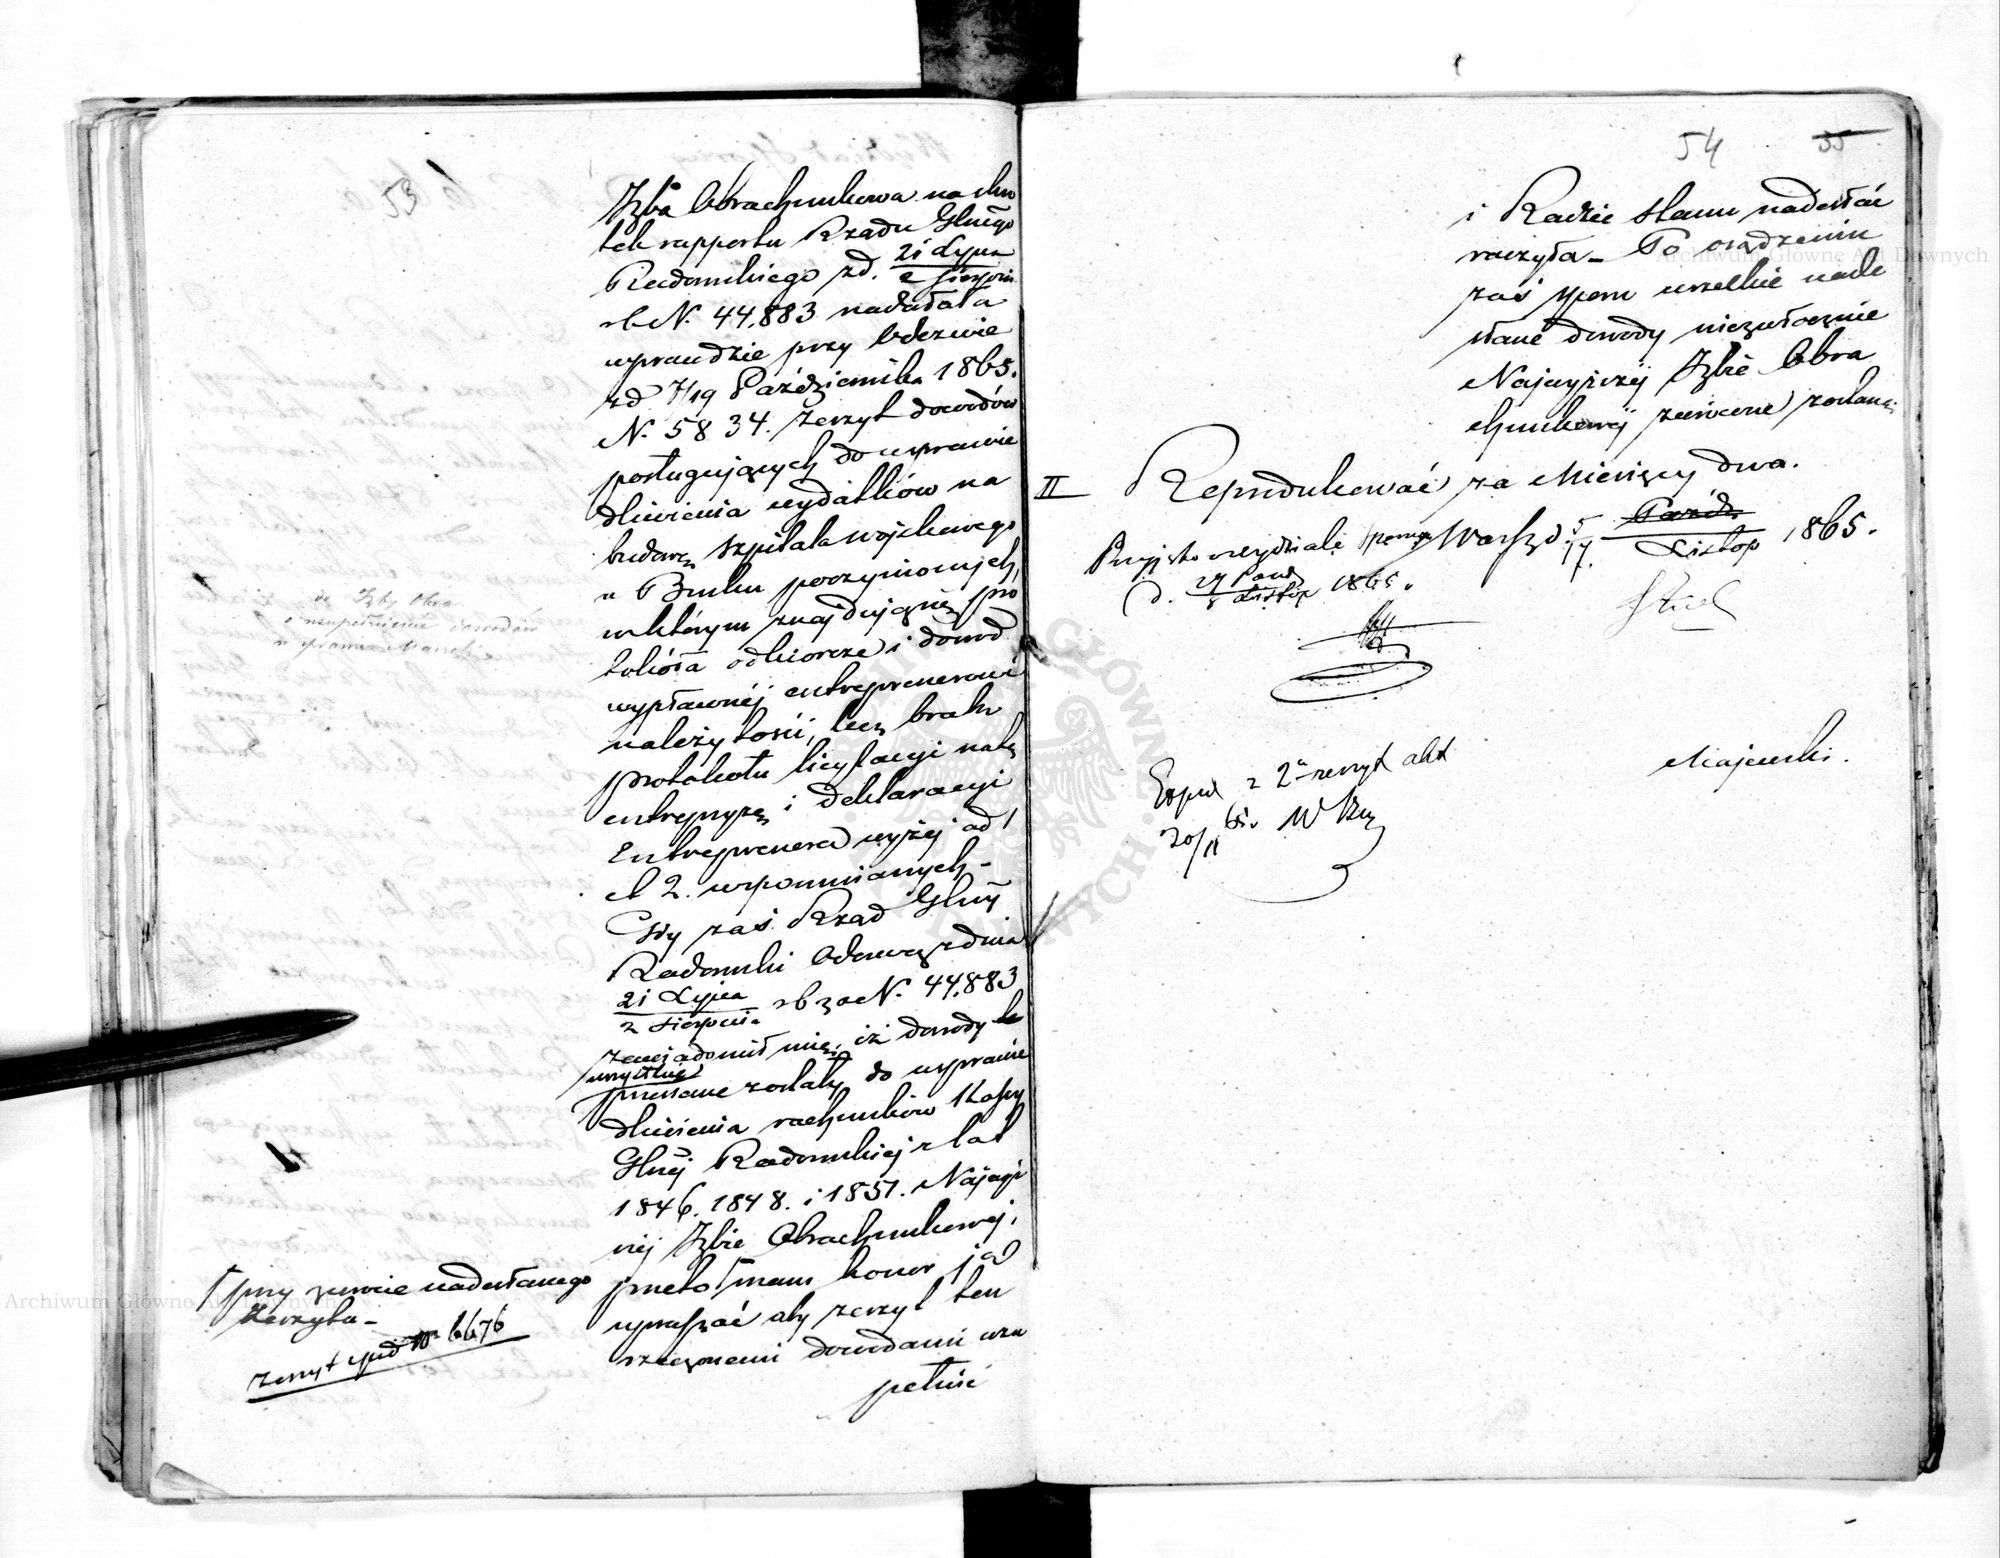 53
Izba Obrachunkowa na sku
tek rapportu Rządu Glnego
Radomskiego zd. 21 Lipca
2 Sierpnia
rb N. 44,883 nadesłała
wprawdzie przy Odezwie
zd 7/19 Października 1865.
N. 5834. zeszyt dowodów
posługujących do uspraw
dliwienia wydatków na
budowę Szpitala wojskowego
w Busku poczynionych,
w którym znajdują się pro
tokóła odbiorcze i dowód
wypłaconéj entreprenerowi
należytości, lecz braku
protokółu licytacyi na tę
entrepryzę i deklaracyi
Entreprenera wyżej ad 1
et 2. wspomnianych –
Gdy zaś Rząd Glny
Radomski Odezwą z dnia
21 Lipca
2 Sierpnia rb za N. 44,883
zawiadomił mię, iż dowody te
wszystkie
przesłane zostały do uspraw
dliwienia rachunków Kassy
Glnéj Radomskiej z lat
1846. 1848. i 1851. Najwyż
széj Izbie Obrachunkowéj,
przeto mam honor
upraszać aby zeszyt ten
rzeczonemi dowodami uzu
pełnić
do Izby Obra
o uzupełnienie dowodów
w sprawie
przy zwrocie nadesłanego
Zeszytu –
zeszyt pod N 6676
54
35
i Radzie Stanu nadesłać
raczyła – Po osądzeniu
zaś sporu wszelkie nade
słane dowody niezwłocznie
Najwyższéj Izbie Obra
chunkowéj zwrócone zostaną
II Reprodukować za Miesięcy dwa.
Przyjęto w wydziale Spornym
d. 27 Paźdz
8 Listop 1865.
Warsz d 5/17. Paźdz
Listop 1865.
Majewski.
Exped z 2ⁿ zeszyt akt
20/11 65.